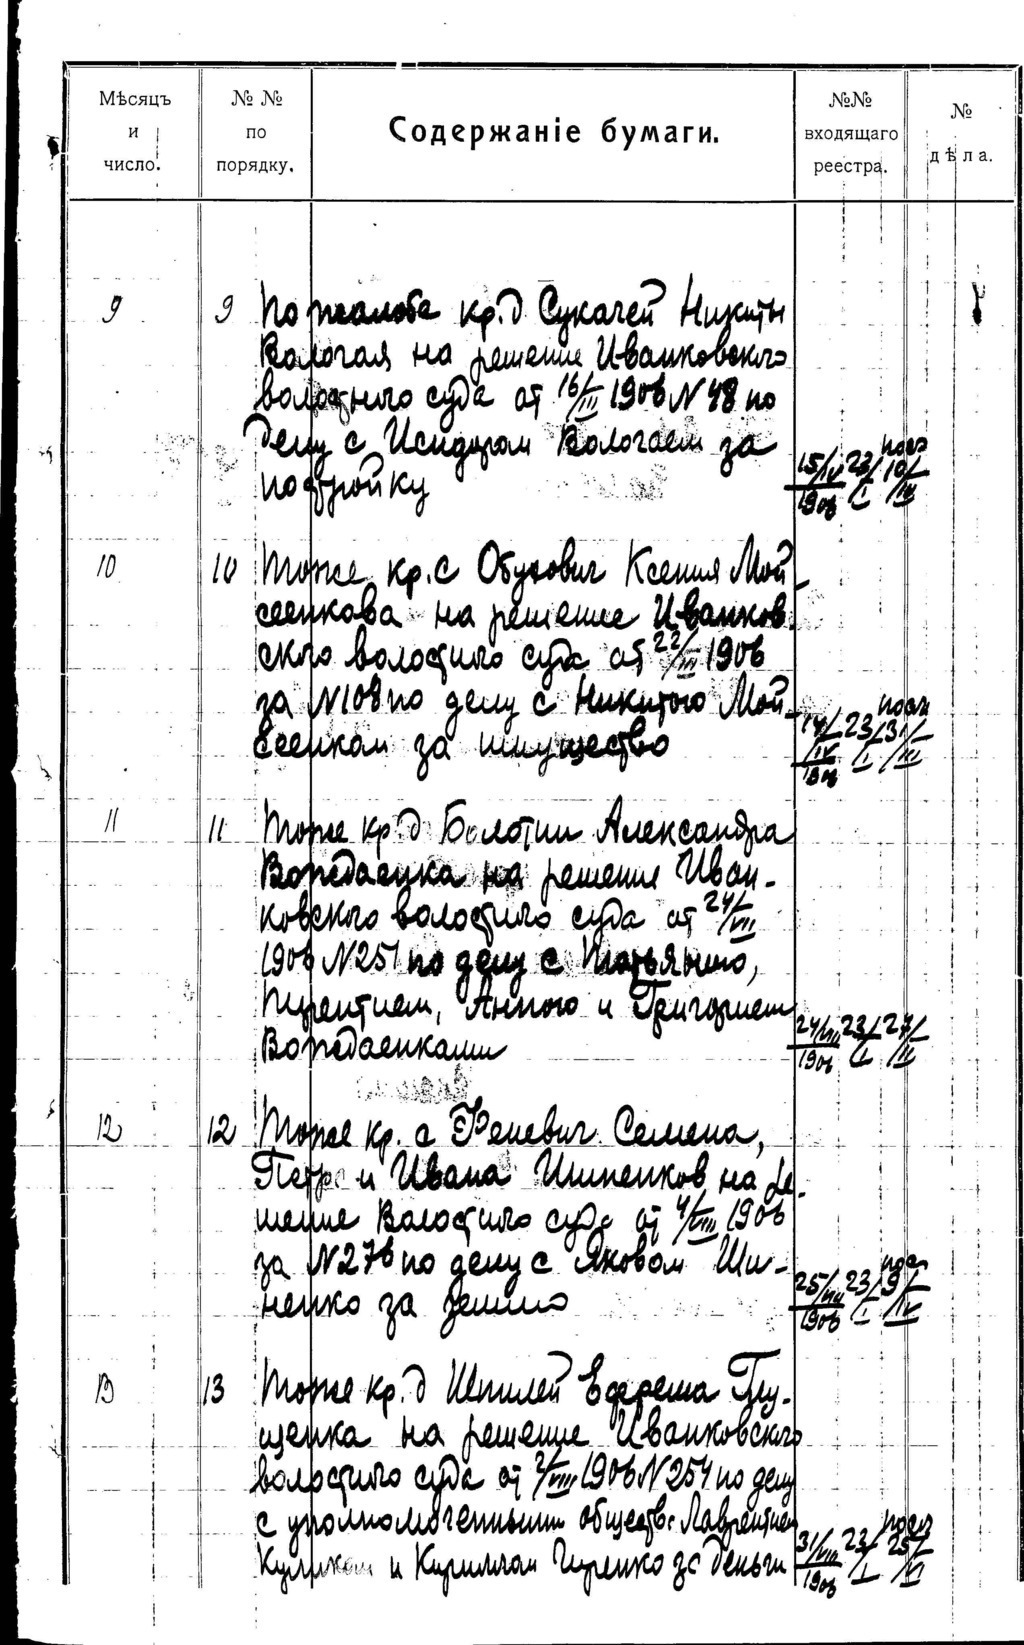 Мѣсяцъ и число.
№ № по порядку.
Содержаніе бумаги.
№№ входящаго реестра.
№ дѣла.
9 9 По жалобе кр. д Сукачей Никиты
Вологая на решение Иванковского
волостного суда от 16/III 1906 N 48 по
делу с Исидором Вологаем за
постройку 15/IV 1906 23/I посл 10/III
10 10 Тоже кр. с Обухович Ксения Мой
сеенкова на решение Иванков
ского волостного суда от 22/III 1906
за N108 по делу с Никитою Мой-
сеенком за имущество 14/IV 1906 23/I посл 31/III
11 11 Тоже кр. д Болотни Александра
Вождаенка на решение Иван-
ковского волостного суда от 24/VII
1906 N251 по делу с Татьяною,
Терентием, Анною и Григорием
Вождаенками 24/VIII 1906 23/I 27/II
12 12 Тоже кр. с Феневич Семена,
Петра и Ивана Шипенков на ре-
шение Волостного суда от 4/VIII 1906
за N276 по делу с Яковом Ши-
пенко за землю 25/VIII 1906 23/I 9/IV
13 13 Тоже кр. д Шпилей Ефрема Глу-
щенка на решение Иванковского
волостного суда от 2/VIII 1906 N254 по делу
с уполномоченными обществ. Лаврентием
Куликом и Кириллом Гиренко за деньги 31/VIII 1906 23/I посл 25/VI